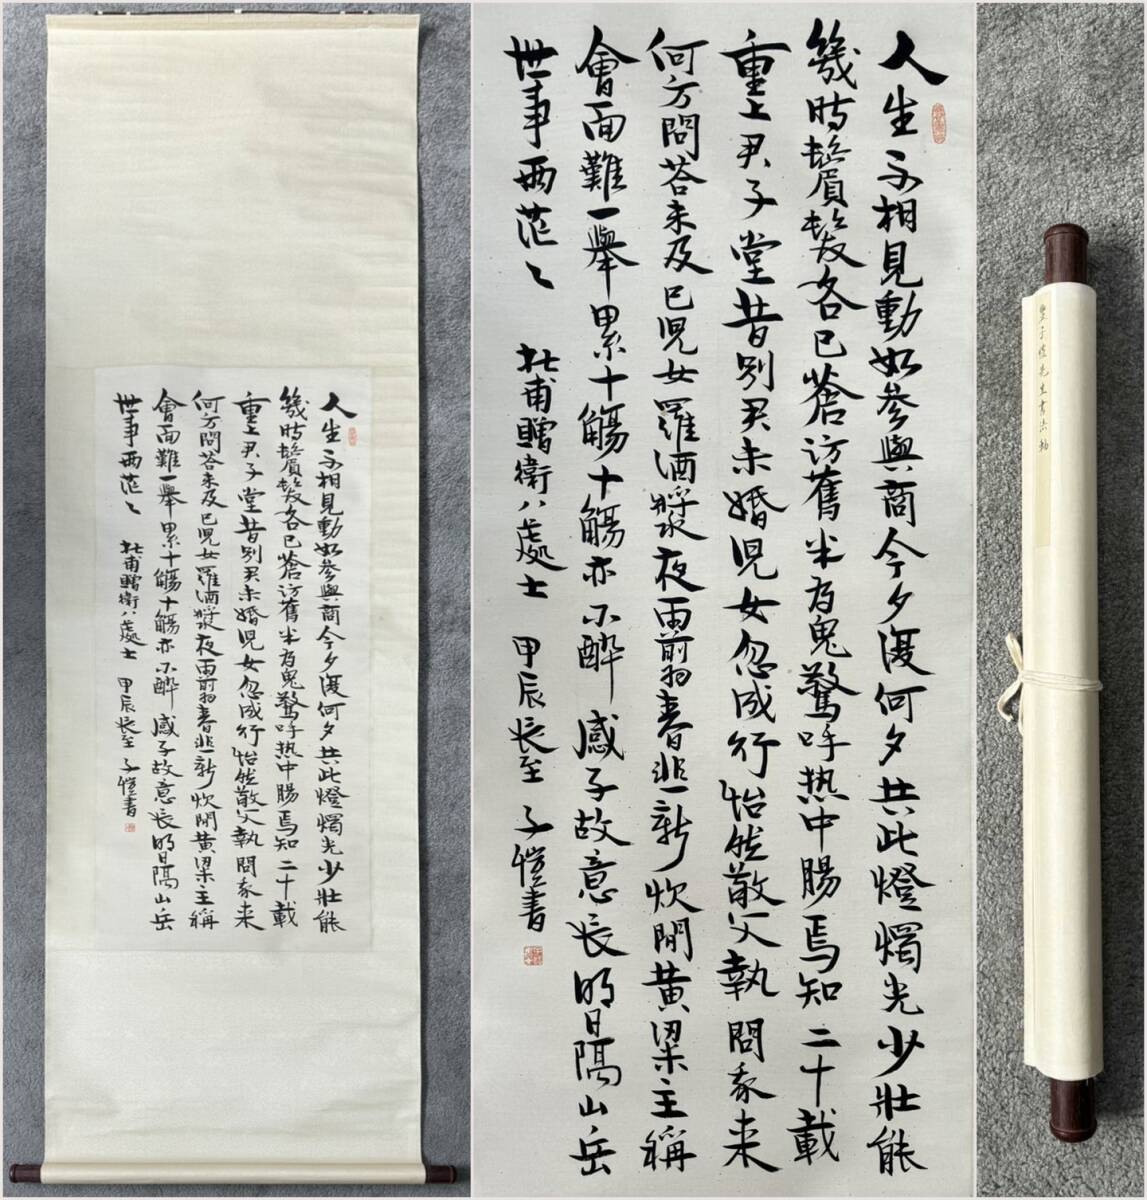 人生不相見動如參與商今夕復何夕共此燈燭光少壯能
幾時鬢髮各已蒼訪舊半為鬼驚呼热中腸焉知二十載
重上君子堂昔別君未婚兒女忽成行怡然敬父執問我来
何方問答未及已兒女羅酒漿夜雨翦春韭新炊間黄粱主稱
會面難一舉累十觴十觴亦不醉感子故意長明日隔山岳
世事兩茫〻 杜甫贈衛八處士 甲辰長至 子愷書
人生不相見動如參與商今夕復何夕共此燈燭光少壯能
幾時鬢髮各已蒼訪舊半為鬼驚呼热中腸焉知二十載
重上君子堂昔別君未婚兒女忽成行怡然敬父執問我来
何方問答未及已兒女羅酒漿夜雨翦春韭新炊間黄粱主稱
會面難一舉累十觴十觴亦不醉感子故意長明日隔山岳
世事兩茫〻 杜甫贈衛八處士 甲辰長至 子愷書
豐子愷先生書法軸